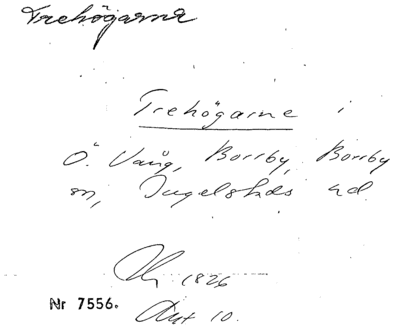 Trehögarna
Trehögarne i
Ö. Vång, Borrby, Borrby
sn, Ingelstads hd.
1826
Nr 7556.
Akt 10.